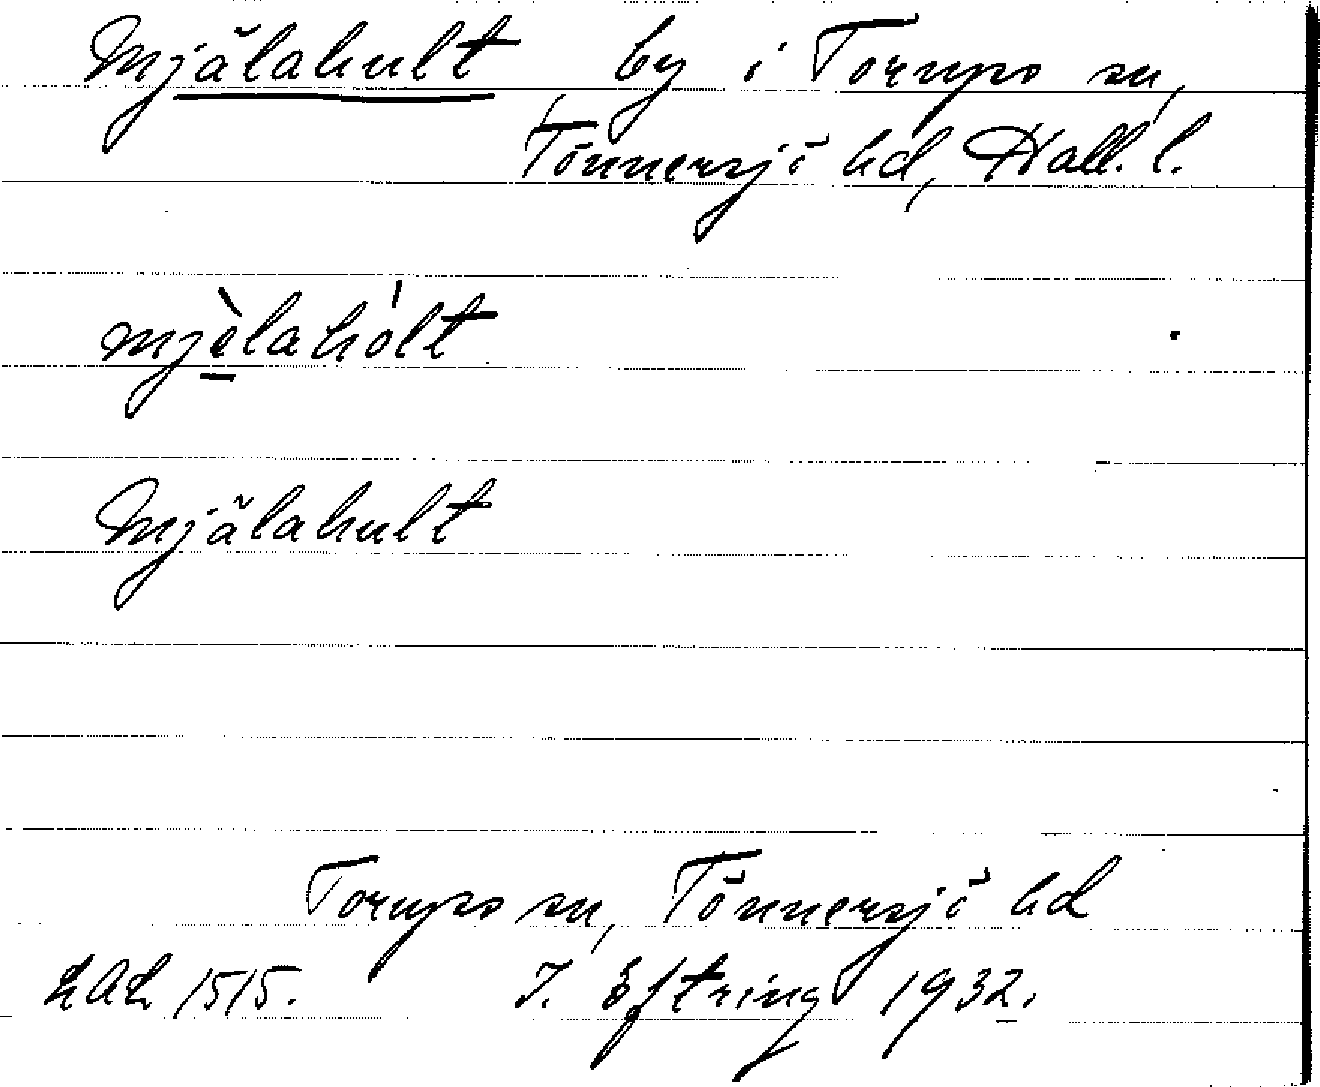 Mjälahult by i Torups sn,
Tönnersjö hd, Hall. l.
mjè̠lahólt
Mjälahult
Torups sn, Tönnersjö hd
LAL 1515. J. Eftring 1932.